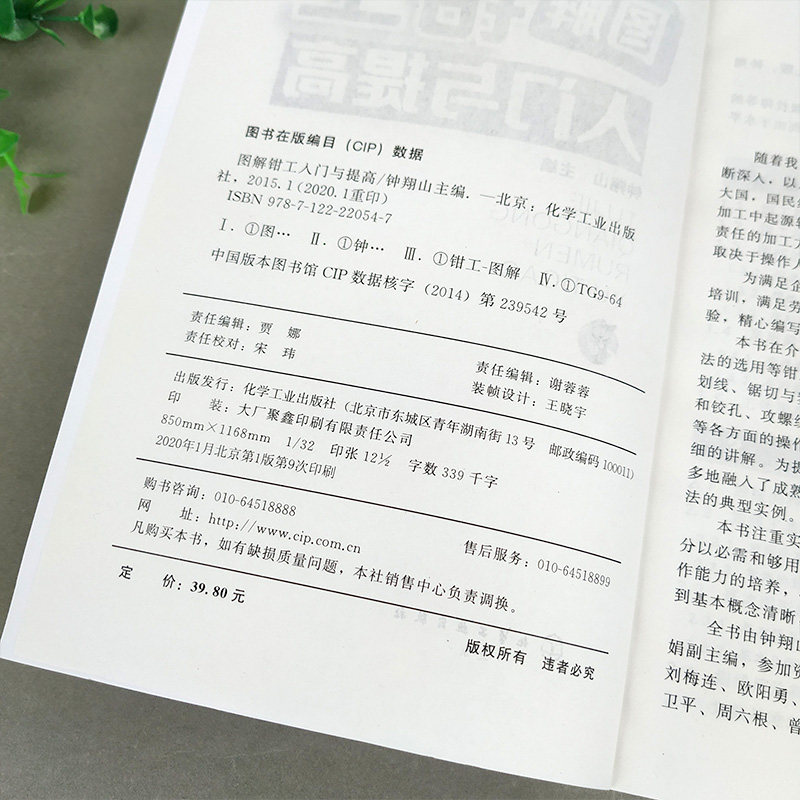 图书在版编目（CIP）数据
图解钳工入门与提高/钟翔山主编．—北京：化学工业出版
社，2015.1（2020.1重印）
ISBN 978-7-122-22054-7
Ⅰ．①图… Ⅱ．①钟… Ⅲ．①钳工-图解 Ⅳ．①TG9-64
中国版本图书馆 CIP 数据核字（2014）第 239542 号
责任编辑：贾 娜
责任校对：宋 玮
责任编辑：谢蓉蓉
装帧设计：王晓宇
出版发行：化学工业出版社（北京市东城区青年湖南街 13 号 邮政编码 100011）
印 装：大厂聚鑫印刷有限责任公司
850mm×1168mm 1/32 印张 12½ 字数 339 千字
2020年1月北京第1版第9次印刷
购书咨询：010-64518888
售后服务：010-64518899
网 址：http://www.cip.com.cn
凡购买本书，如有缺损质量问题，本社销售中心负责调换。
定 价：39.80 元
版权所有 违者必究
随着我
断深入，以
大国，国民经
加工中起源较
责任的加工方
取决于操作人
为满足企
培训，满足劳
验，精心编写
本书在介
法的选用等钳
划线、锯切与
和铰孔、攻螺纹
等各方面的操作
细的讲解。为提
多地融入了成熟
法的典型实例。
本书注重实
分以必需和够用
作能力的培养，
到基本概念清晰
全书由钟翔山
娟副主编，参加资
刘梅连、欧阳勇、
卫平、周六根、曾